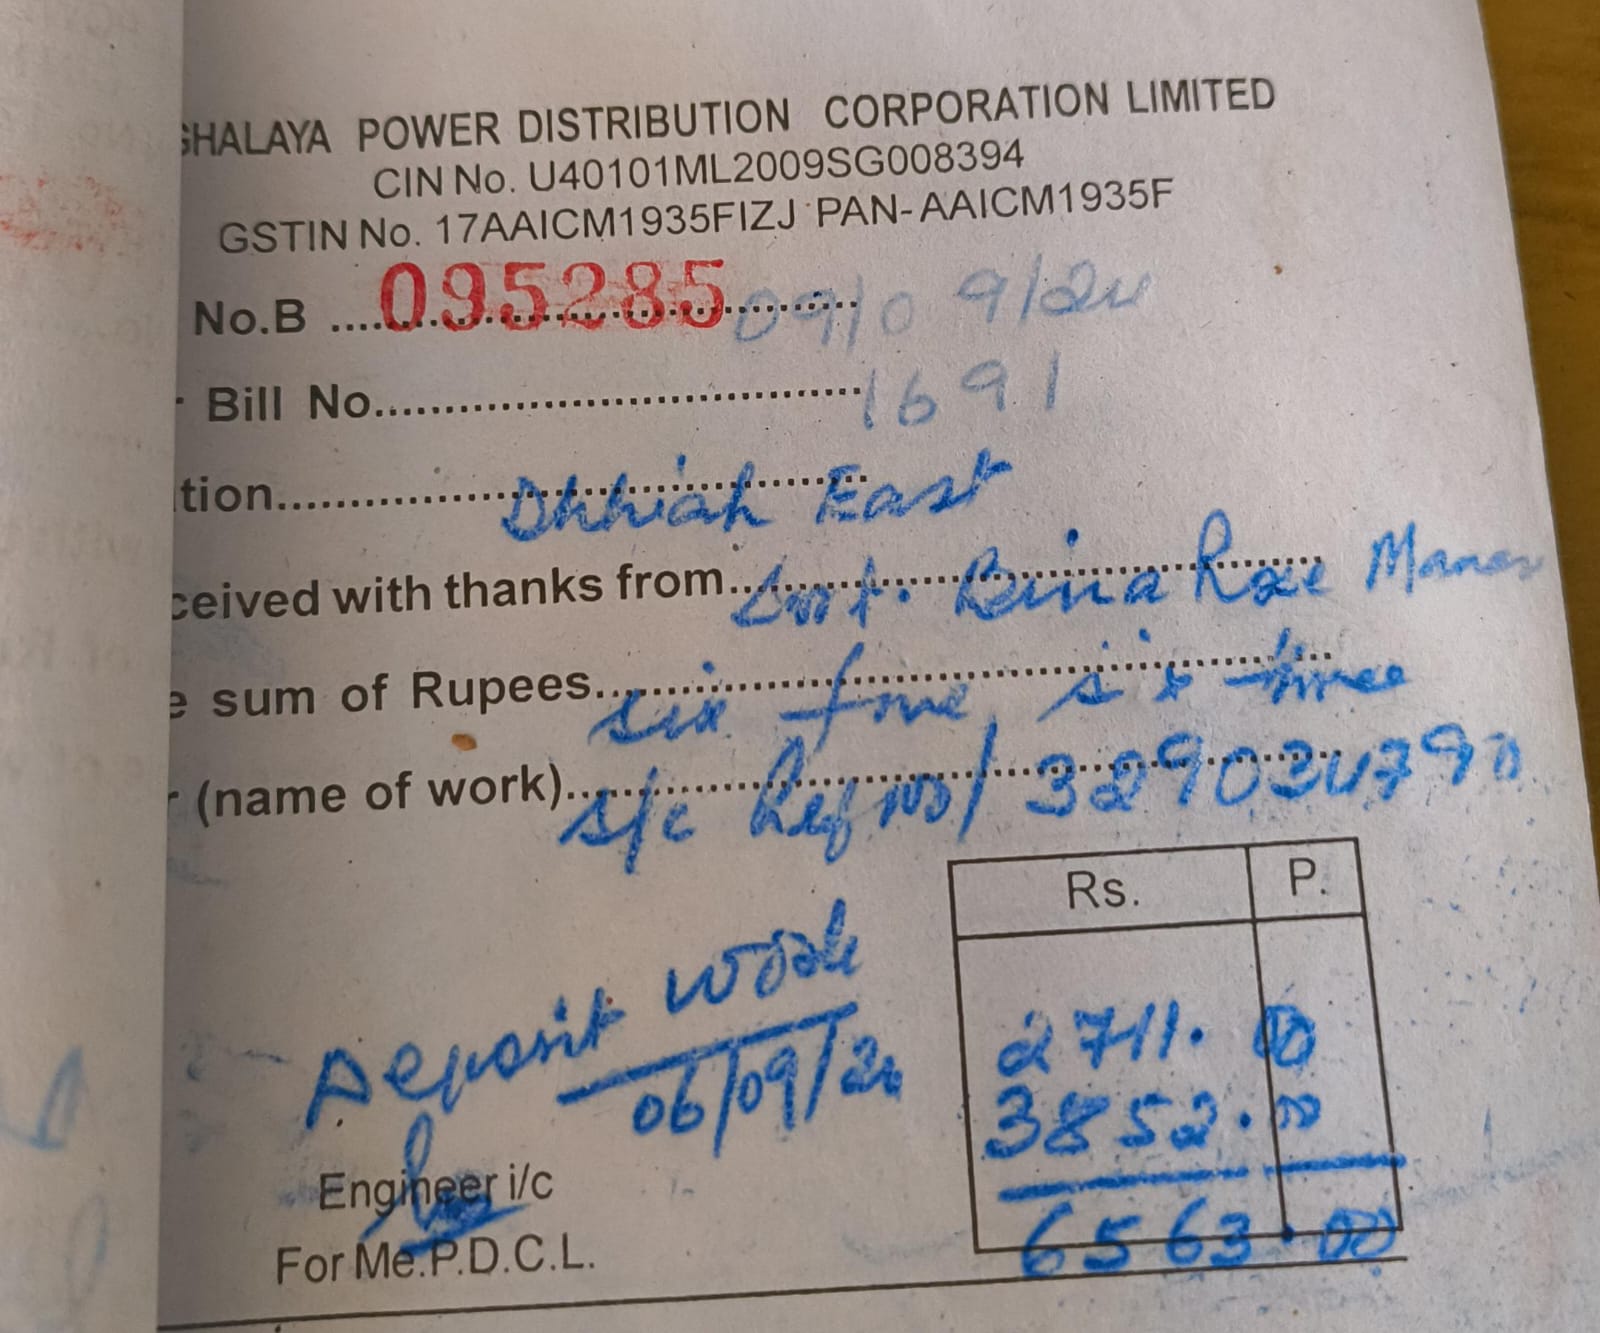 GHALAYA POWER DISTRIBUTION CORPORATION LIMITED
CIN No. U40101ML2009SG008394
GSTIN No. 17AAICM1935FIZJ PAN-AAICM1935F
No.B ....095285 09/09/24
Bill No. 1691
tion. East
ceived with thanks from Smt. Bina Rose
e sum of Rupees six five six three
r (name of work) s/c Ref no/
Rs. P.
Deposit work
06/09/24
2711.00
3852.00
6563.00
Engineer i/c
For Me.P.D.C.L.